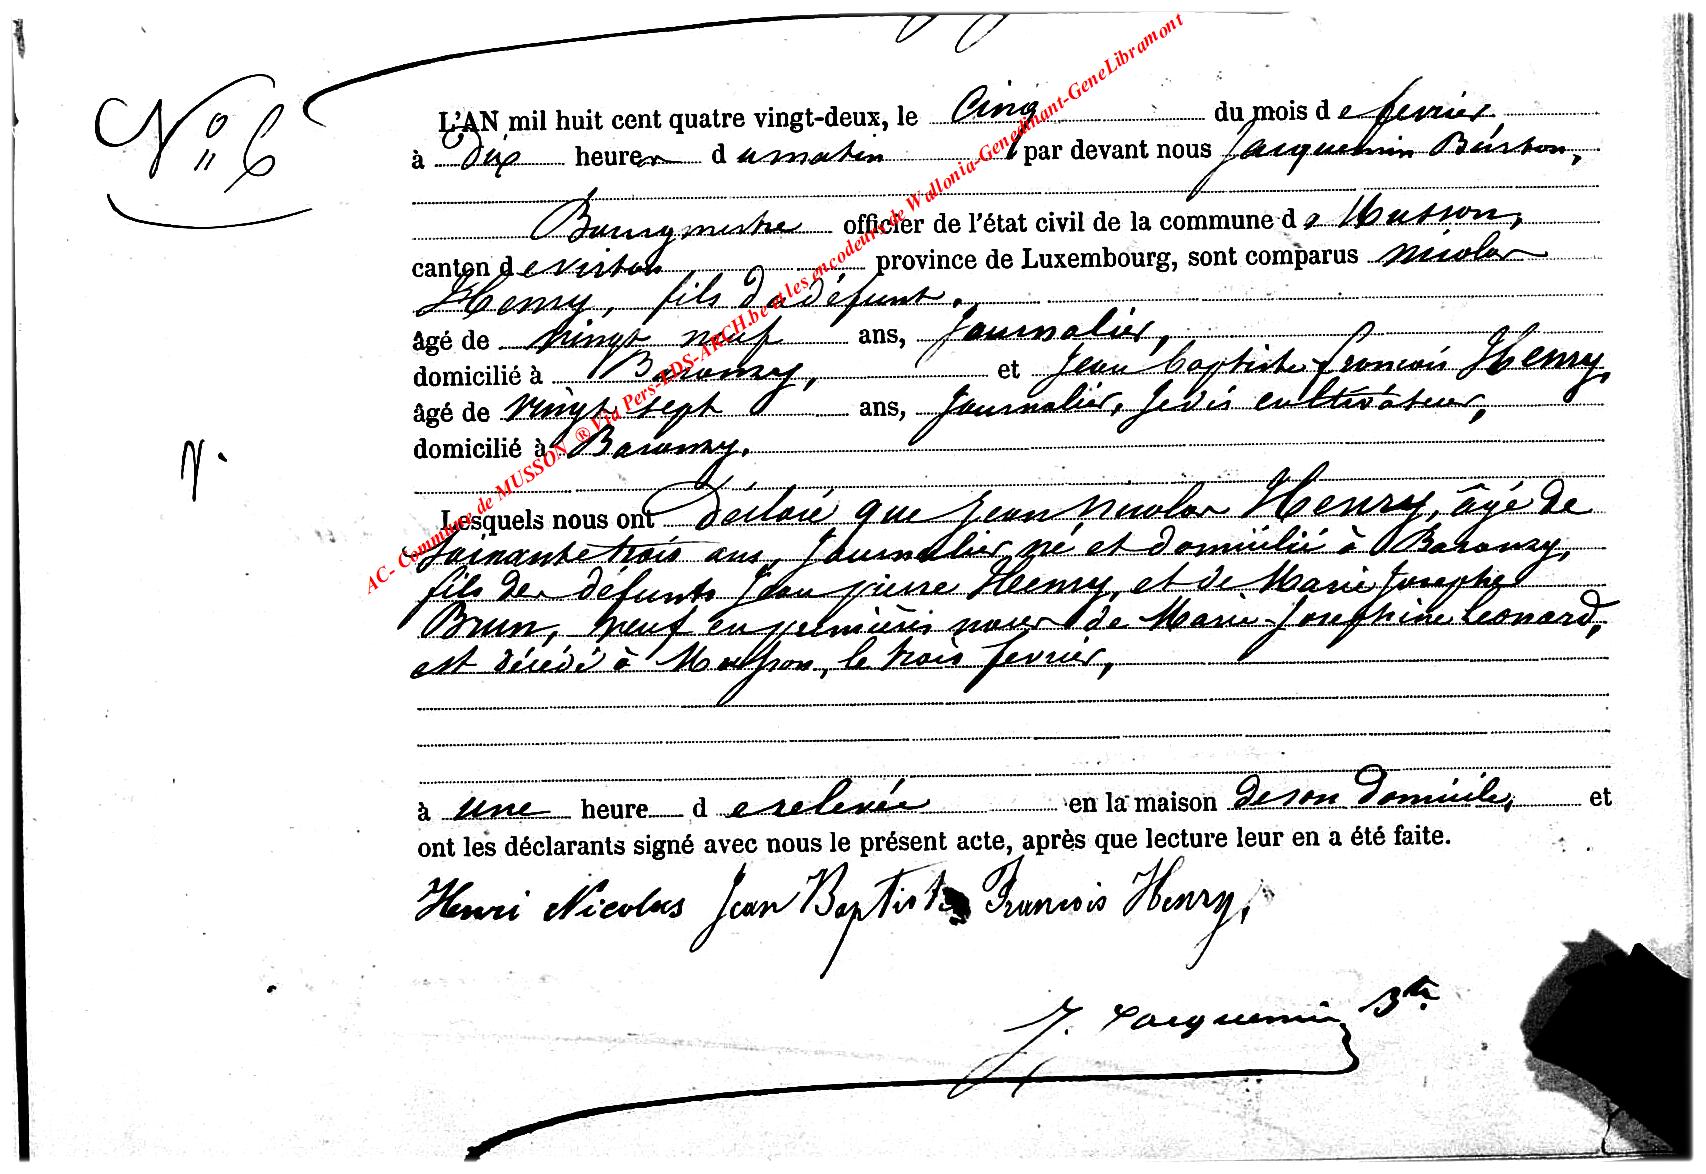 N° 6
L'AN mil huit cent quatre vingt-deux, le Cinq du mois de fevrier
à Dix heures du matin par devant nous Jacquemin
Bourgmestre officier de l'état civil de la commune de Musson,
canton de Virton province de Luxembourg, sont comparus Nicolas
Henry, fils du défunt.
âgé de vingt neuf ans, Journalier,
domicilié à Baranzy, et Jean Baptiste francois Henry,
âgé de vingt sept ans, Journalier, Je dis cultivateur,
domicilié à Baranzy.
N.
Lesquels nous ont Déclaré que Jean Nicolas Henry, âgé de
Soixante trois ans, Journalier, né et domicilié à Baranzy,
fils des défunts Jean pierre Henry, et de Marie Josephe
Brun, veuf en premières noces de Marie-Josephine Leonard,
est décédé à Musson, le trois fevrier,
à une heure de relevée en la maison de son domicile, et
ont les déclarants signé avec nous le présent acte, après que lecture leur en a été faite.
Henri Nicolas Jean Baptiste Francois Henry,
J. Jacquemin Btre
AC- Commune de MUSSON ® Via Pers-LDS-ARCH.be et les encodeurs de Wallonia-Genedinant-GeneLibramont